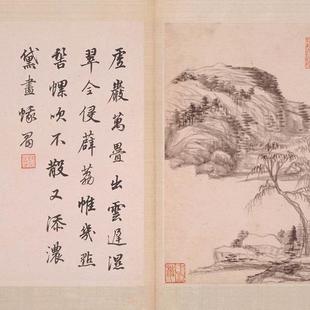 虛巖萬疊出雲遲濕
翠全侵薜荔帷幾點
髻螺吹不散又添濃
黛畫蛾眉